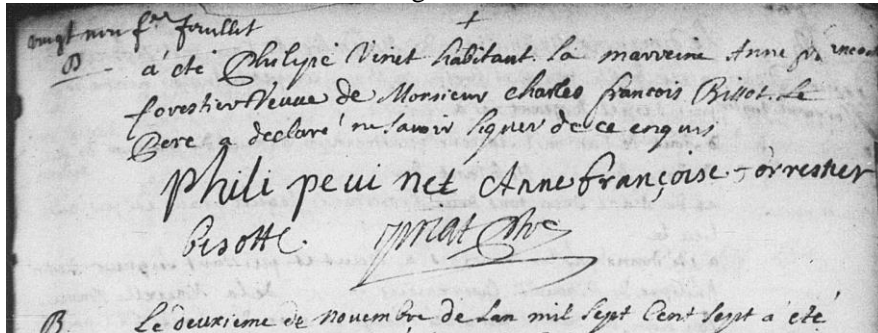 vingt neuf f.er feuillet
B
a été Philipe Vinet habitant. la marreine Anne françoise
forestier Veuve de Monsieur charles françois Bissot. Le
Pere a declaré ne savoir signer de ce enquis.
Phili pe vi net Anne françoise forrestier
bisotte. priat ptre
B. Le deuxieme de novembre de Lan mil sept Cent sept a été